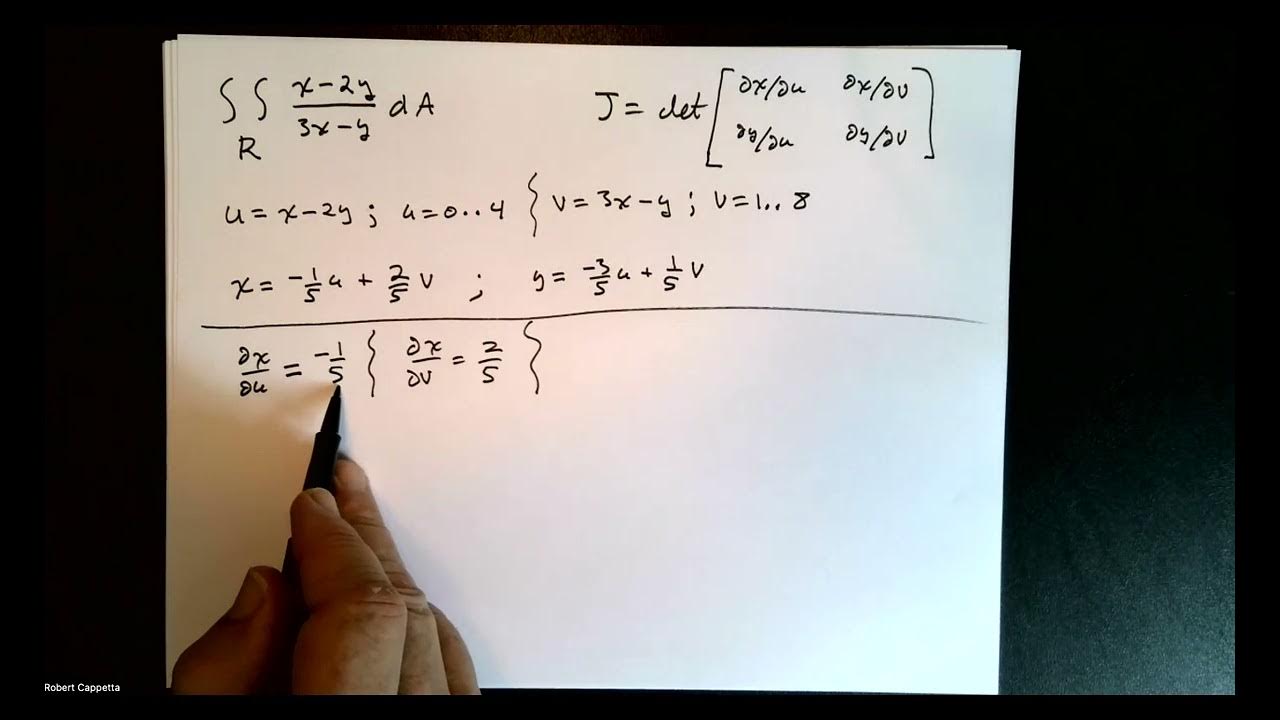 ∫∫ x-2y/3x-y dA J = det [∂x/∂u ∂x/∂v
R ∂y/∂u ∂y/∂v]
u = x-2y ; u=0..4 { v = 3x-y ; v=1..8
x = -1/5 u + 2/5 v ; y = -3/5 u + 1/5 v
∂x/∂u = -1/5 { ∂x/∂v = 2/5 {
Robert Cappetta